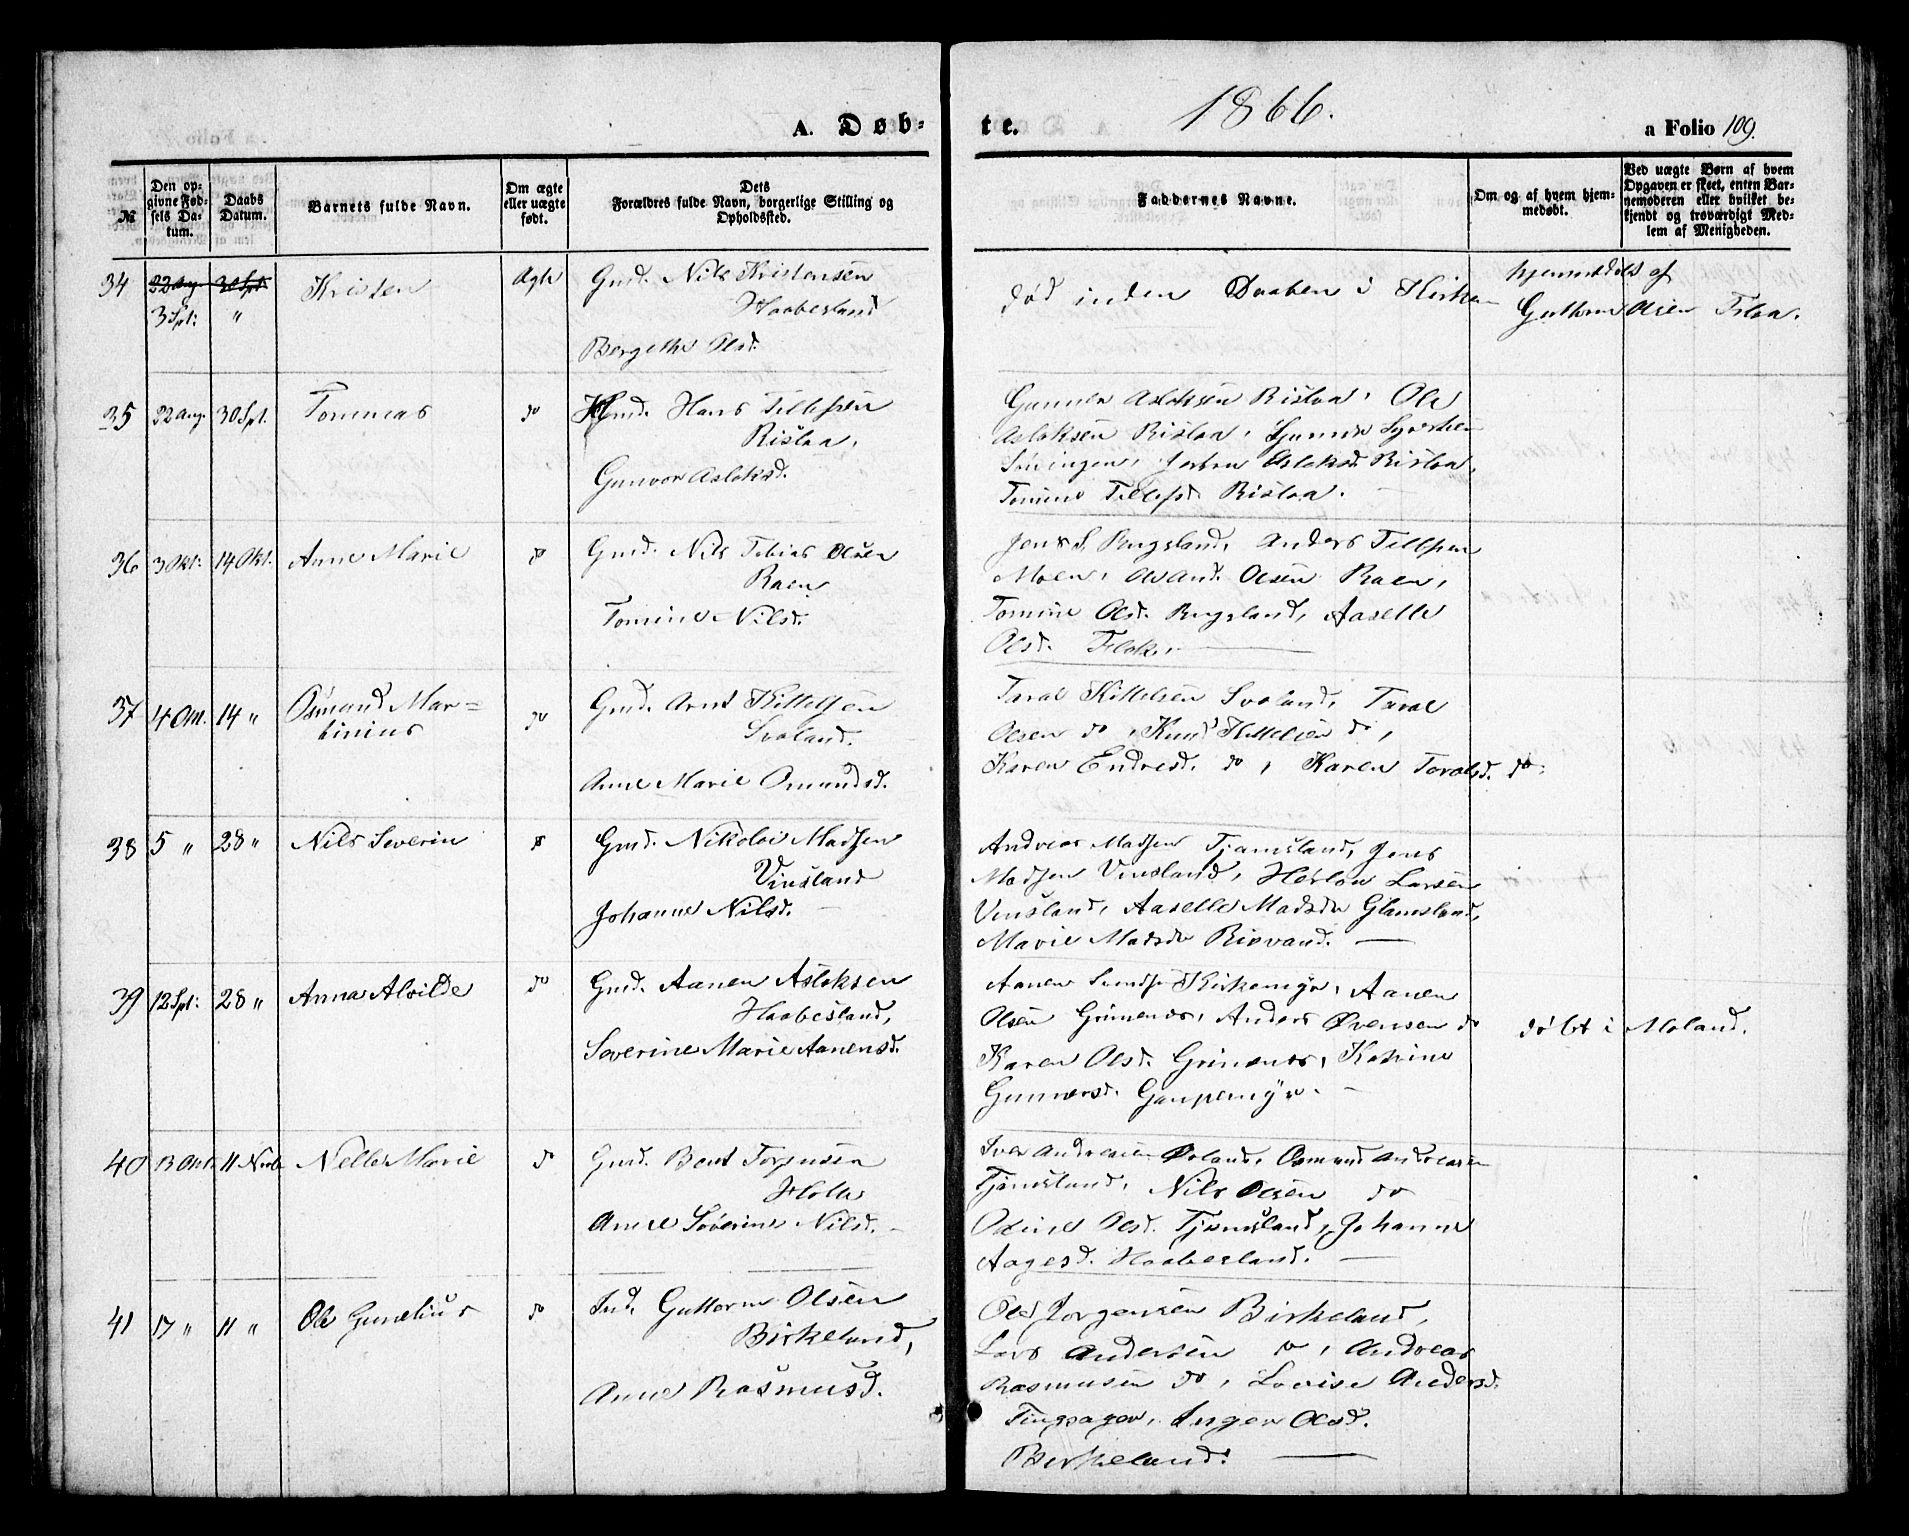 A. Døb- te. 1866. a Folio 109.
№
Den op-
givne Fød-
sels Da-
tum.
Daabs
Datum.
Barnets fulde Navn.
Om ægte
eller uægte
født.
Dets
Forældres fulde Navn, borgerlige Stilling og
Opholdssted.
Faddernes Navne.
Om og af hvem hjem-
medøbt.
Ved uægte Børn af hvem
Opgaven er skeet, enten Bar-
nemoderen eller hvilket be-
kjendt og troværdigt Med-
lem af Menigheden.
34 22 Aug. 30 Spt. Kristen Ægte Gmd. Nils Kristensen
3 Spt: " Haabesland
Bergethe Olsd.
død inden Daaben i Kirken
hjemmedøbt af
Guttorm Olsen Flaa.
35 22 Aug. 30 Spt. Tommas do Gmd. Hans Tellefsen
Risløa,
Gunvor Aslaksd.
Gunner Aslaksen Risløa, Ole
Aslaksen Risløa,
Aslaksd. Risløa,
Tomine Tellefsd. Risløa.
36 3 Okt: 14 Okt. Anne Marie do Gmd. Nils Tobias Olsen
Raen
Tomine Nilsd.
Jens S. Rugsland, Anders Tellefsen
Moen, Olsen Raen,
Tomine Olsd. Rugsland, Aaselle
Olsd.
37 4 Okt. 14 " Osmund Mar-
tinius do Gmd. Arnt Kittelsen
Svaland.
Anne Marie Osmundsd.
Taral Kittelsen Svaland, Taral
Olsen do, Knud Kittelsen do,
Karen Endresd. do, Karen Taralsd. do.
38 5 " 28 " Nils Severin do Gmd. Nikolai Madsen
Vinsland
Johanne Nilsd.
Andreas Madsen Tjamsland, Jens
Madsen Vinsland, Herlou Larsen
Vinsland, Aaselle Madsdr Glamsland,
Marie Madsdr Risvand.
39 12 Spt: 28 " Anna Alvilde do Gmd. Aanen Aslaksen
Haabesland,
Severine Marie Aanensd.
Aanen Kirkemyr, Aanen
Olsen Grimenes, Anders Øvensen do
Karen Olsd. Grimenes, Katrine
Gunnersd. Gaupemyr.
døbt i Moland.
40 13 Okt. 11 Novb. Nelle Marie do Gmd. Bent Torjussen
Holte
Anne Severine Nilsd.
Iver Andreasen Øoland, Osmund Andreasen
Tjamsland, Nils Olsen do
Oline Olsd. Tjamsland, Johanne
Aagesd. Haabesland.
41 17 " 11 " Ole Gunelius do Ind. Guttorm Olsen
Birkeland,
Anne Rasmusd.
Ole Jørgensen Birkeland,
Lars Andersen do, Andreas
Rasmusen do, Lovise Andersd.
Tingsager, Inger Olsd.
Berkeland.